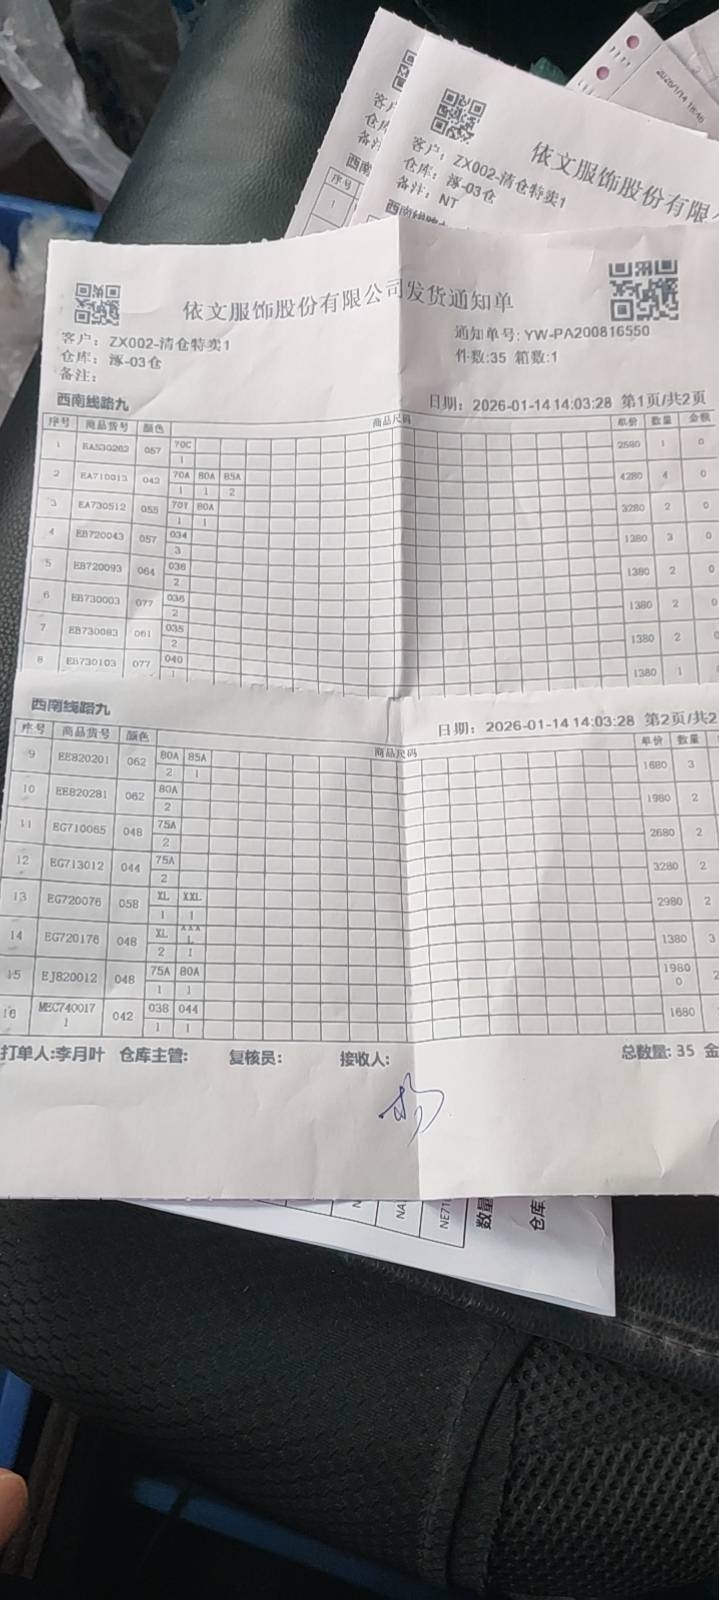 依文服饰股份有限公司
客户: ZX002-清仓特卖1
仓库: 涿-03仓
备注: NT
2026/1/14 16:46
依文服饰股份有限公司发货通知单
客户: ZX002-清仓特卖1
仓库: 涿-03仓
备注:
通知单号: YW-PA200816550
件数:35 箱数:1
西南线路九
日期: 2026-01-14 14:03:28 第1页/共2页
序号 商品货号 颜色 商品尺码 单价 数量 金额
1 EA530263 057 70C 2580 1 0
1
2 EA710013 043 70A 80A 85A 4280 4 0
1 1 2
3 EA730512 055 70Y 80A 3280 2 0
1 1
4 EB720043 057 034 1380 3 0
3
5 EB720093 064 036 1380 2 0
2
6 EB730003 077 036 1380 2 0
2
7 EB730083 061 035 1380 2 0
2
8 EB730103 077 040 1380 1
1
西南线路九
日期: 2026-01-14 14:03:28 第2页/共2
序号 商品货号 颜色 商品尺码 单价 数量
9 EE820201 062 80A 85A 1680 3
2 1
10 EE820281 062 80A 1980 2
2
11 EG710065 048 75A 2680 2
2
12 EG713012 044 75A 3280 2
2
13 EG720076 058 XL XXL 2980 2
1 1
14 EG720176 048 XL XXXL 1380 3
2 1
15 EJ820012 048 75A 80A 19800 2
1 1
16 MEC7400171 042 038 044 1680
1 1
打单人:李月叶 仓库主管: 复核员: 接收人: 总数量: 35 金
NE71
数量
仓库